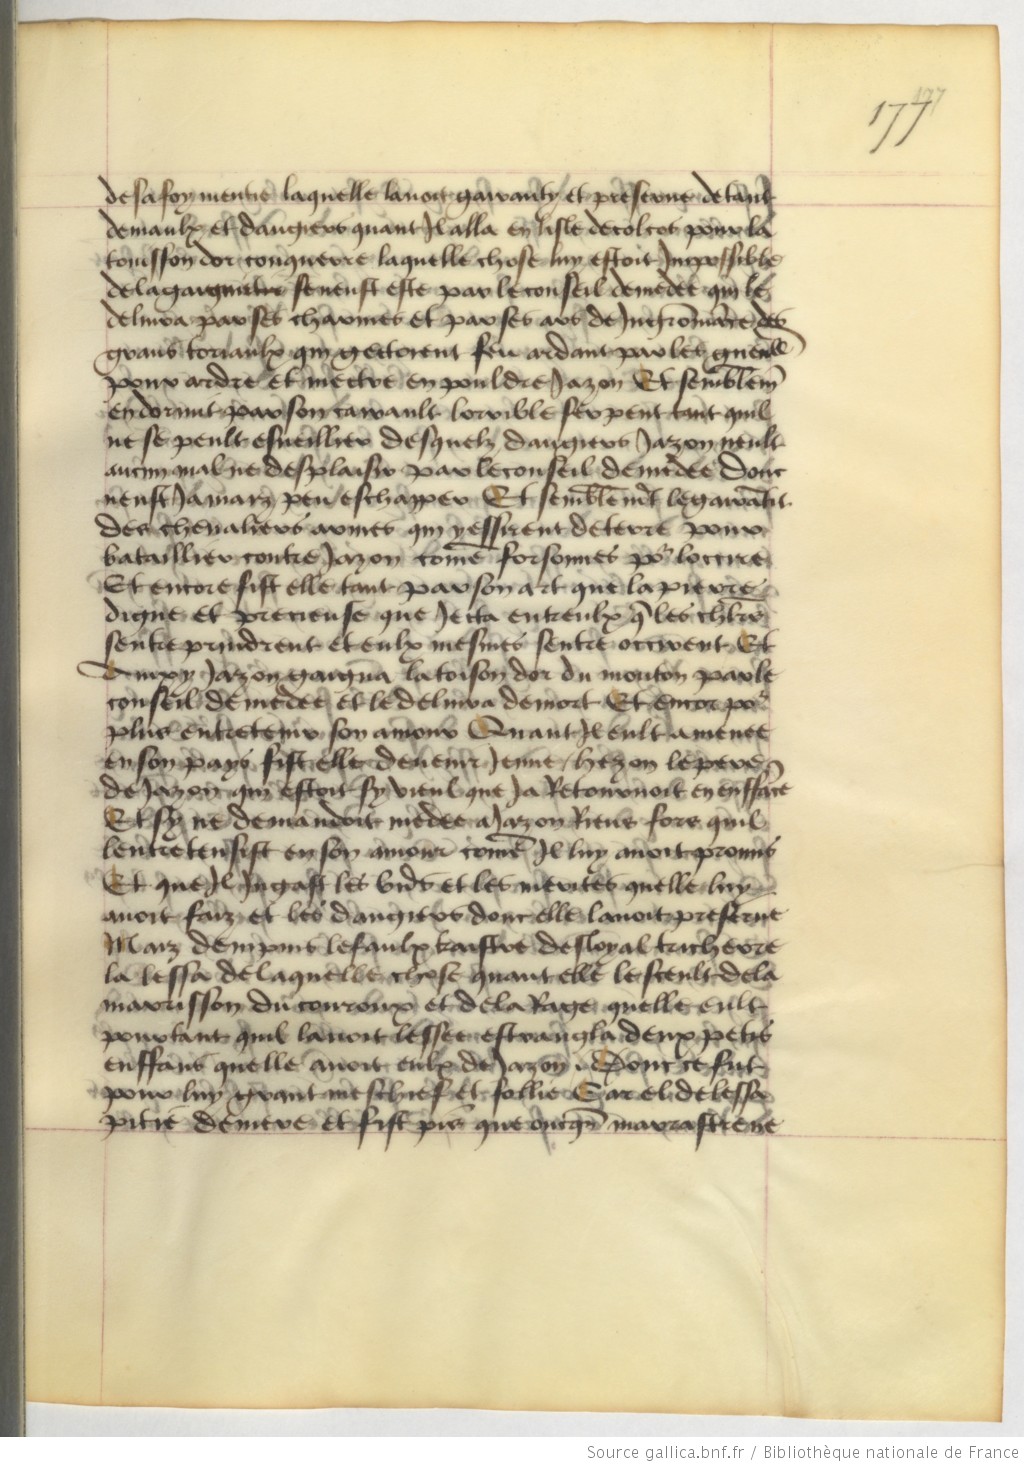 177
177
de sa foy mentie laquelle lavoit garanty et preserve de tant
de maulx et dangiers quant Il alla en lisle de colcos pour la
toisson dor conquerre laquelle chose luy estoit Impossible
de la gaigner se neust este par le conseil de medee qui le
delivra par ses charmes et par ses ars de Nicromance des
grans toriaulx qui gectoient feu ardant par les gueulle
pour ardre et mectre en pouldre Jazon Et semblem̄
endormit par son carault lorrible serpent tant quil
ne se peult esveillier desquelz dangiers Jazon neult
aucun mal ne desplaisir par le conseil de medee donc
neust Jamaiz peu eschaper Et semblem̄t le garātit
des chevaliers armes qui yssirent de terre pour
bataillier contre Jazon com̄e forsonnes po^r loccire
Et encore fist elle tant par son art que la pierre
digne et precieuse que Jecta entreulx q̄ les chlrs
sentre prindrent et eulx mesmes sentre occirent Et
Jazon gaigna la toison dor du mouton par le
conseil de medee et le delivra de mort Et encor po^r
plus entretenir son amour Quant Il eult amenee
en son pays fist elle devenir Jenne hezon le pere
de Jazon qui estoit sy vieul que Ja Retournoit en enffāce
Et sy ne demandoit medee a Jazon Riens fors quil
lentretensist en son amour com̄e Il luy avoit promis
Et que Il Jugast les bn̄s et les merites quelle luy
avoit faiz et les dangiers donc elle lavoit preserve
Maiz depuis le faulx traistre desloyal tricherre
la lessa de laquelle chose quant elle le sceult de la
marrisson du couroux et de la Rage quelle eult
pourtant quil lavoit lessee estrangla deux petis
enffans quelle avoit eulx de Jazon Donc ce fut
pour luy grant meschief et follie Car el delessa
pitie de mere et fist pis que oncq̄s marrastre ne
Source gallica.bnf.fr / Bibliothèque nationale de France